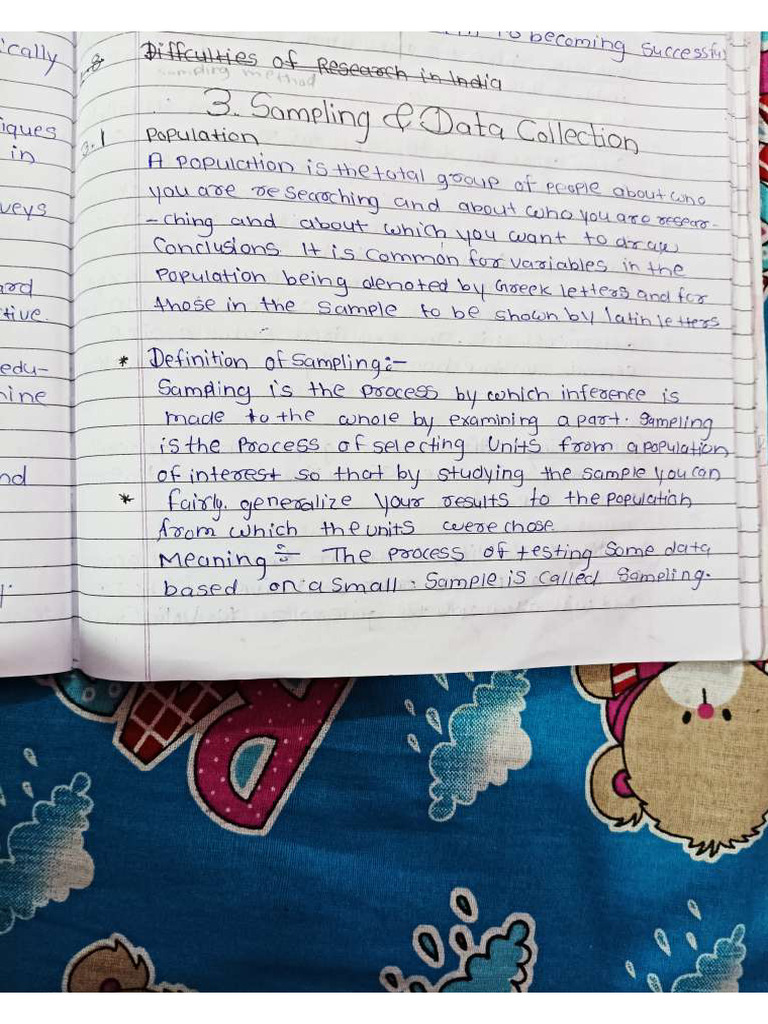 to becoming successfu
ically
Diffculties of Research in India
sampling method
3. Sampling & Data Collection
iques
3.1 Population
in
A population is the total group of people about who
you are researching and about who you are resear-
veys
-ching and about which you want to draw
Conclusions. It is common for variables in the
ard
Population being denoted by Greek letters and for
tive.
those in the sample to be shown by latin letters
edu-
* Definition of Sampling:-
ine
Sampling is the process by which inference is
made to the whole by examining a part. Sampling
is the Process of selecting Units from a population
nd
of interest so that by studying the sample you can
* fairly. generalize your results to the population
from which the units were chose
Meaning:- The process of testing some data
based on a small. Sample is called Sampling.